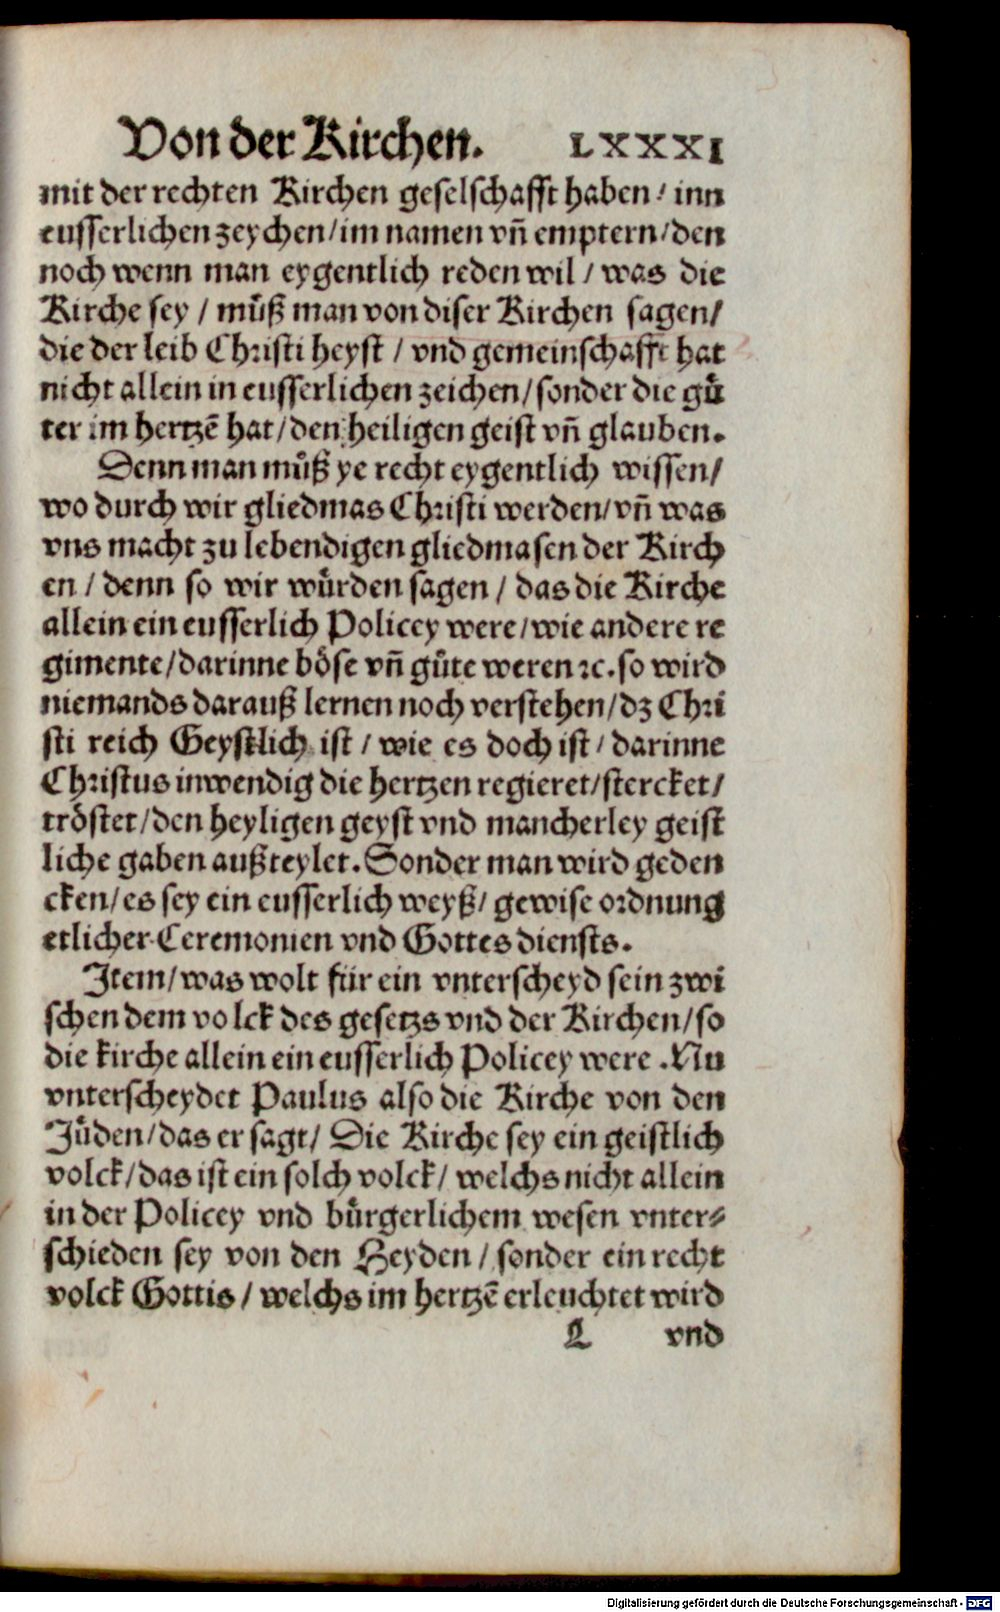 Von der Kirchen. LXXXI
mit der rechten Kirchen geselschafft haben / inn
eusserlichen zeychen/im namen vñ emptern/den
noch wenn man eygentlich reden wil / was die
Kirche sey / muͤß man von diser Kirchen sagen/
die der leib Christi heyst / vnd gemeinschafft hat
nicht allein in eusserlichen zeichen/sonder die guͤ
ter im hertzẽ hat/den heiligen geist vñ glauben.
Denn man muͤß ye recht eygentlich wissen/
wo durch wir gliedmas Christi werden/vñ was
vns macht zu lebendigen gliedmasen der Kirch
en / denn so wir wuͤrden sagen / das die Kirche
allein ein eusserlich Policey were/wie andere re
gimente/darinne boͤse vñ guͤte weren ꝛc. so wird
niemands darauß lernen noch verstehen/dz Chri
sti reich Geystlich ist / wie es doch ist / darinne
Christus inwendig die hertzen regieret/stercket/
troͤstet/den heyligen geyst vnd mancherley geist
liche gaben außteylet. Sonder man wird geden
cken/es sey ein eusserlich weyß/ gewise ordnung
etlicher Ceremonien vnd Gottes diensts.
Item/was wolt für ein vnterscheyd sein zwi
schen dem volck des gesetzs vnd der Kirchen/so
die kirche allein ein eusserlich Policey were .Nu
vnterscheydet Paulus also die Kirche von den
Juͤden/das er sagt/ Die Kirche sey ein geistlich
volck/das ist ein solch volck/ welchs nicht allein
in der Policey vnd buͤrgerlichem wesen vnter⸗
schieden sey von den Heyden / sonder ein recht
volck Gottis / welchs im hertzẽ erleuchtet wird
L vnd
Digitalisierung gefördert durch die Deutsche Forschungsgemeinschaft - DFG